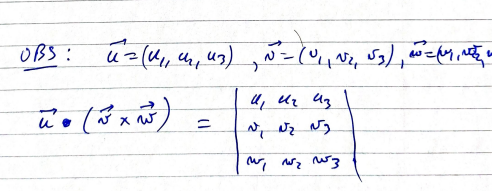 OBS: u⃗=(u₁, u₂, u₃), v⃗=(v₁, v₂, v₃), w⃗=(w₁, w₂,
u⃗ • (v⃗ × w⃗) = | u₁ u₂ u₃ |
| v₁ v₂ v₃ |
| w₁ w₂ w₃ |